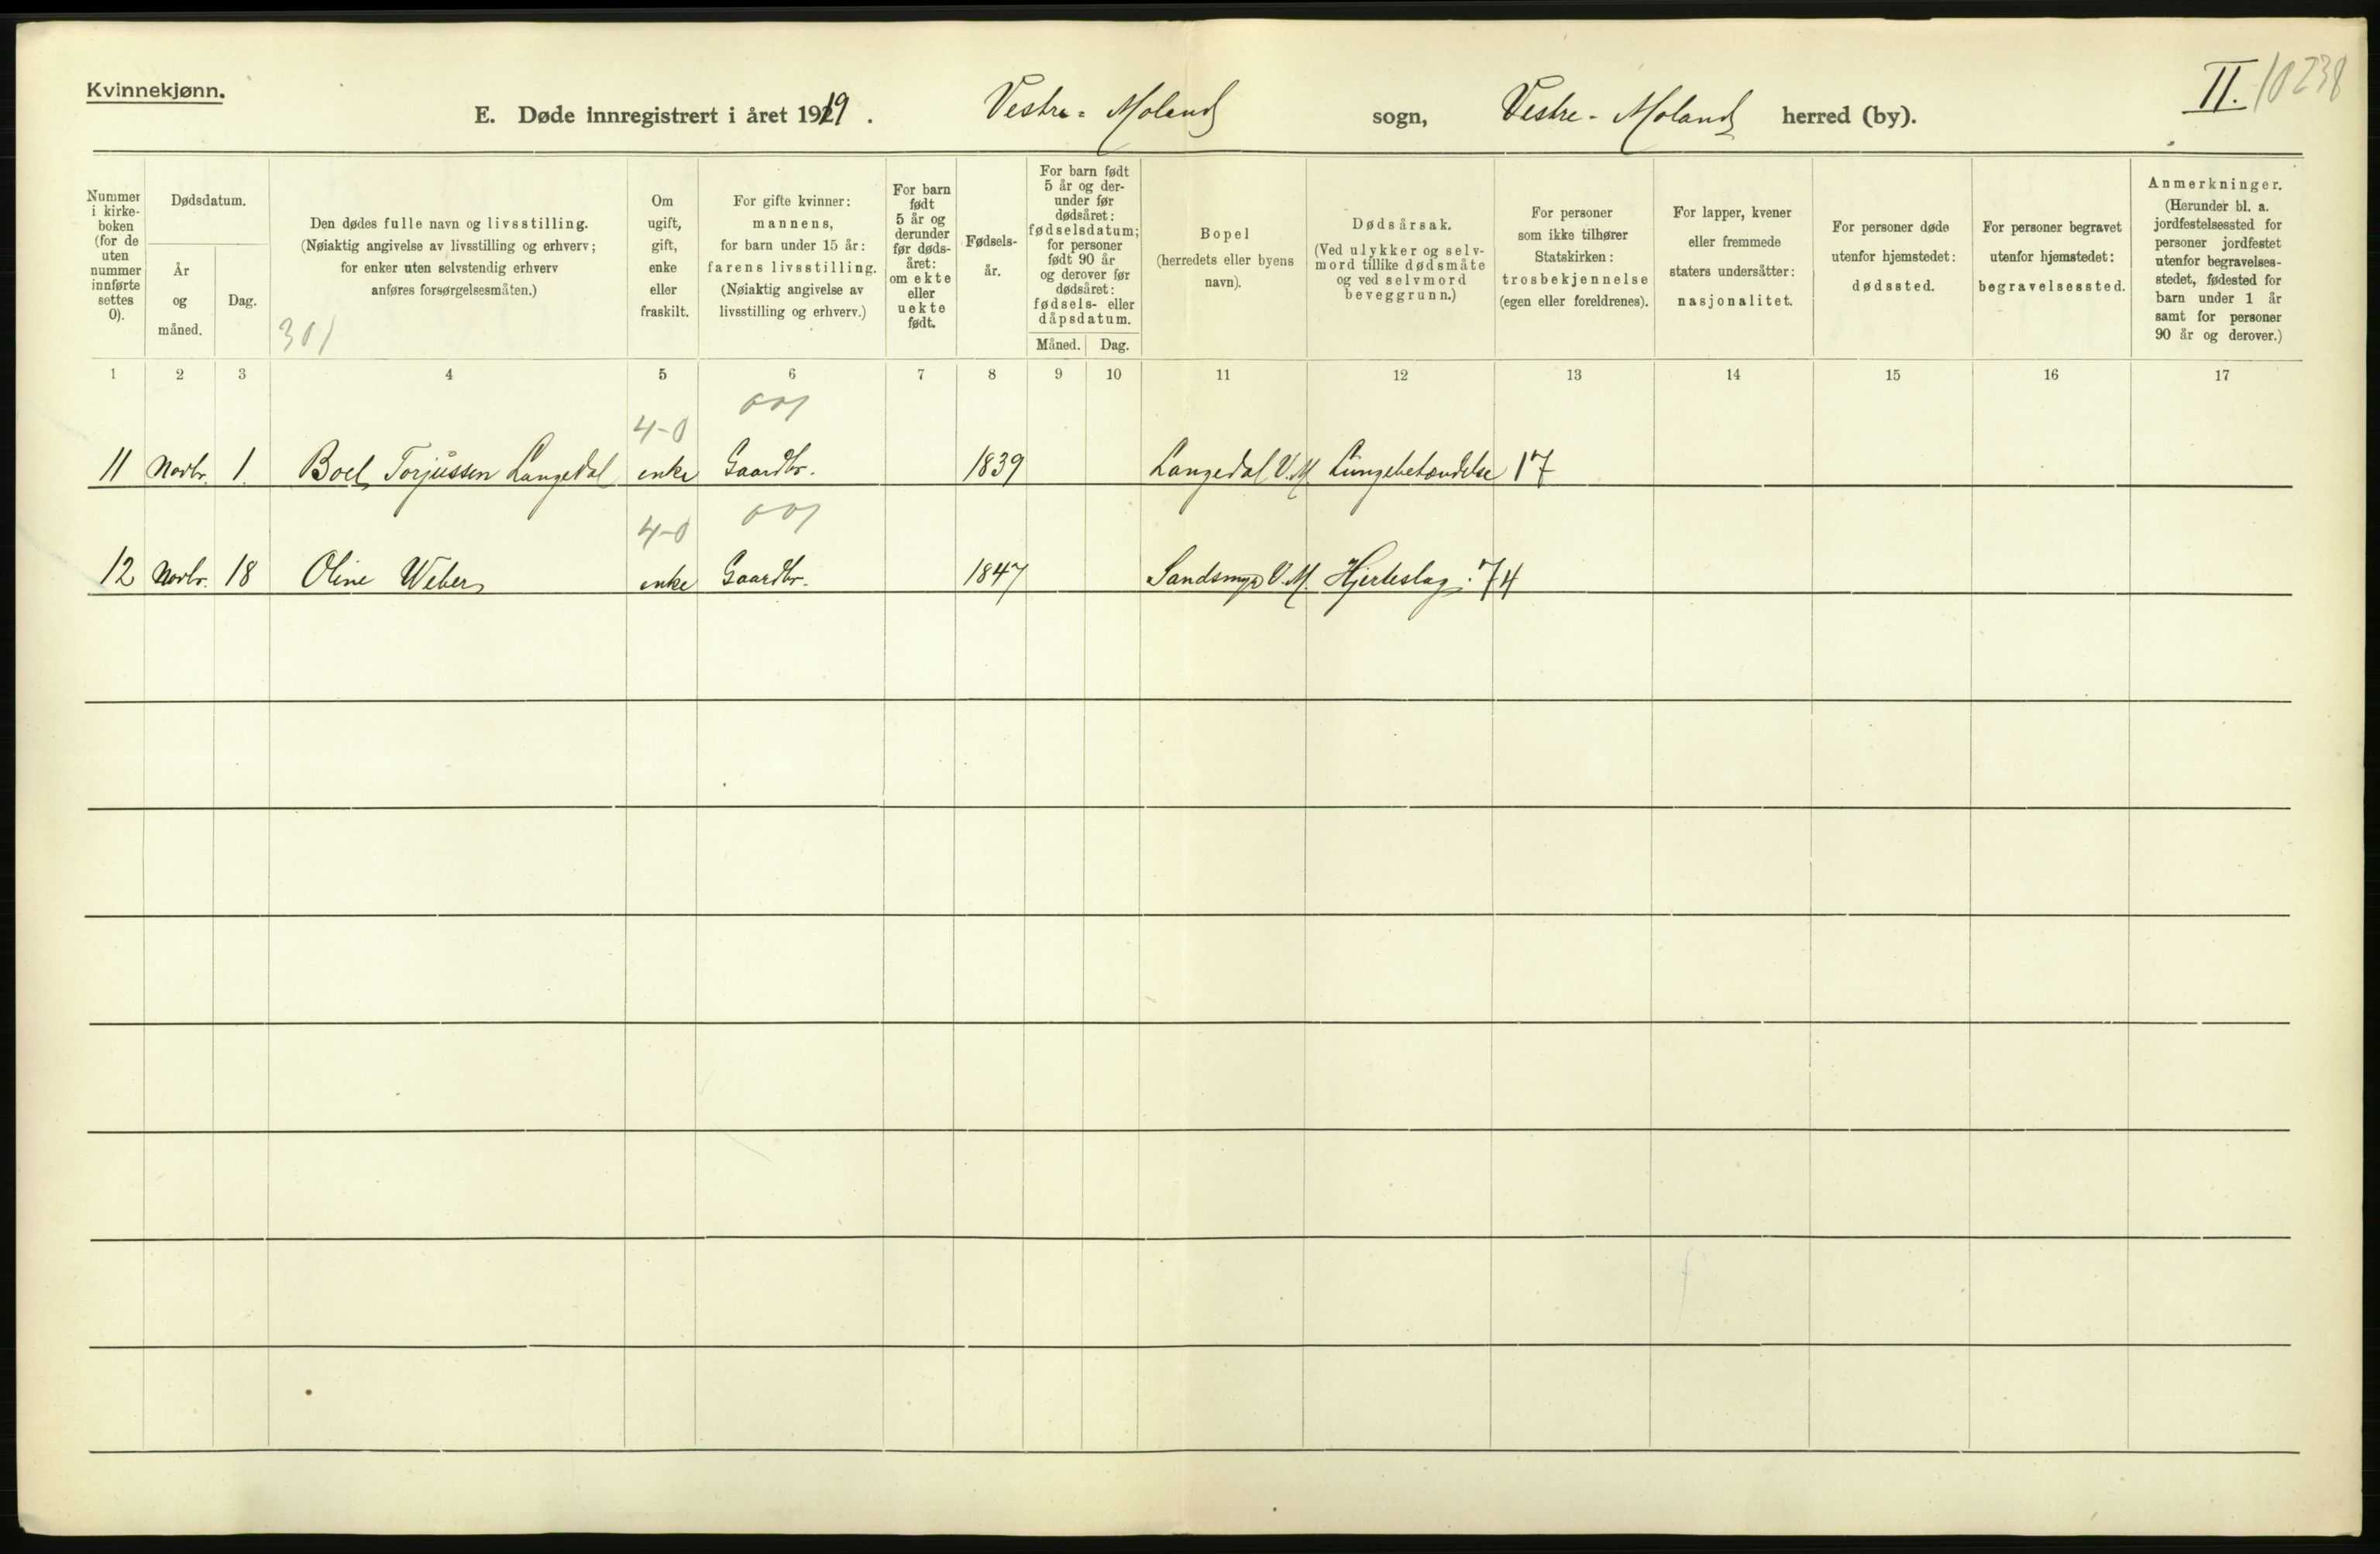 Kvinnekjønn.
E. Døde innregistrert i året 1919. Vestre-Moland sogn, Vestre-Moland herred (by).
II. 10238
Nummer i kirke-boken (for de uten nummer innførte settes 0).
Dødsdatum.
År og måned.
Dag.
Den dødes fulle navn og livsstilling.
(Nøiaktig angivelse av livsstilling og erhverv;
for enker uten selvstendig erhverv
anføres forsørgelsesmåten.)
301
Om
ugift,
gift,
enke
eller
fraskilt.
For gifte kvinner:
mannens,
for barn under 15 år:
farens livsstilling.
(Nøiaktig angivelse av
livsstilling og erhverv.)
For barn
født
5 år og
derunder
før døds-
året:
om ekte
eller
uekte
født.
Fødsels-
år.
For barn født
5 år og der-
under før
dødsåret:
fødselsdatum;
for personer
født 90 år
og derover før
dødsåret:
fødsels- eller
dåpsdatum.
Måned. Dag.
Bopel
(herredets eller byens
navn).
Dødsårsak.
(Ved ulykker og selv-
mord tillike dødsmåte
og ved selvmord
beveggrunn.)
For personer
som ikke tilhører
Statskirken:
trosbekjennelse
(egen eller foreldrenes).
For lapper, kvener
eller fremmede
staters undersåtter:
nasjonalitet.
For personer døde
utenfor hjemstedet:
dødssted.
For personer begravet
utenfor hjemstedet:
begravelsessted.
Anmerkninger.
(Herunder bl. a.
jordfestelsessted for
personer jordfestet
utenfor begravelses-
stedet, fødested for
barn under 1 år
samt for personer
90 år og derover.)
1 2 3 4 5 6 7 8 9 10 11 12 13 14 15 16 17
4-0 001
11 Novbr. 1. Boel Torjussen Langedal enke Gaardbr. 1839 Langedal V.M. Lungebetændelse 17
4-0 001
12 Novbr. 18 Oline Weber enke Gaardbr. 1847 Sandsmyr V.M. Hjerteslag. 74